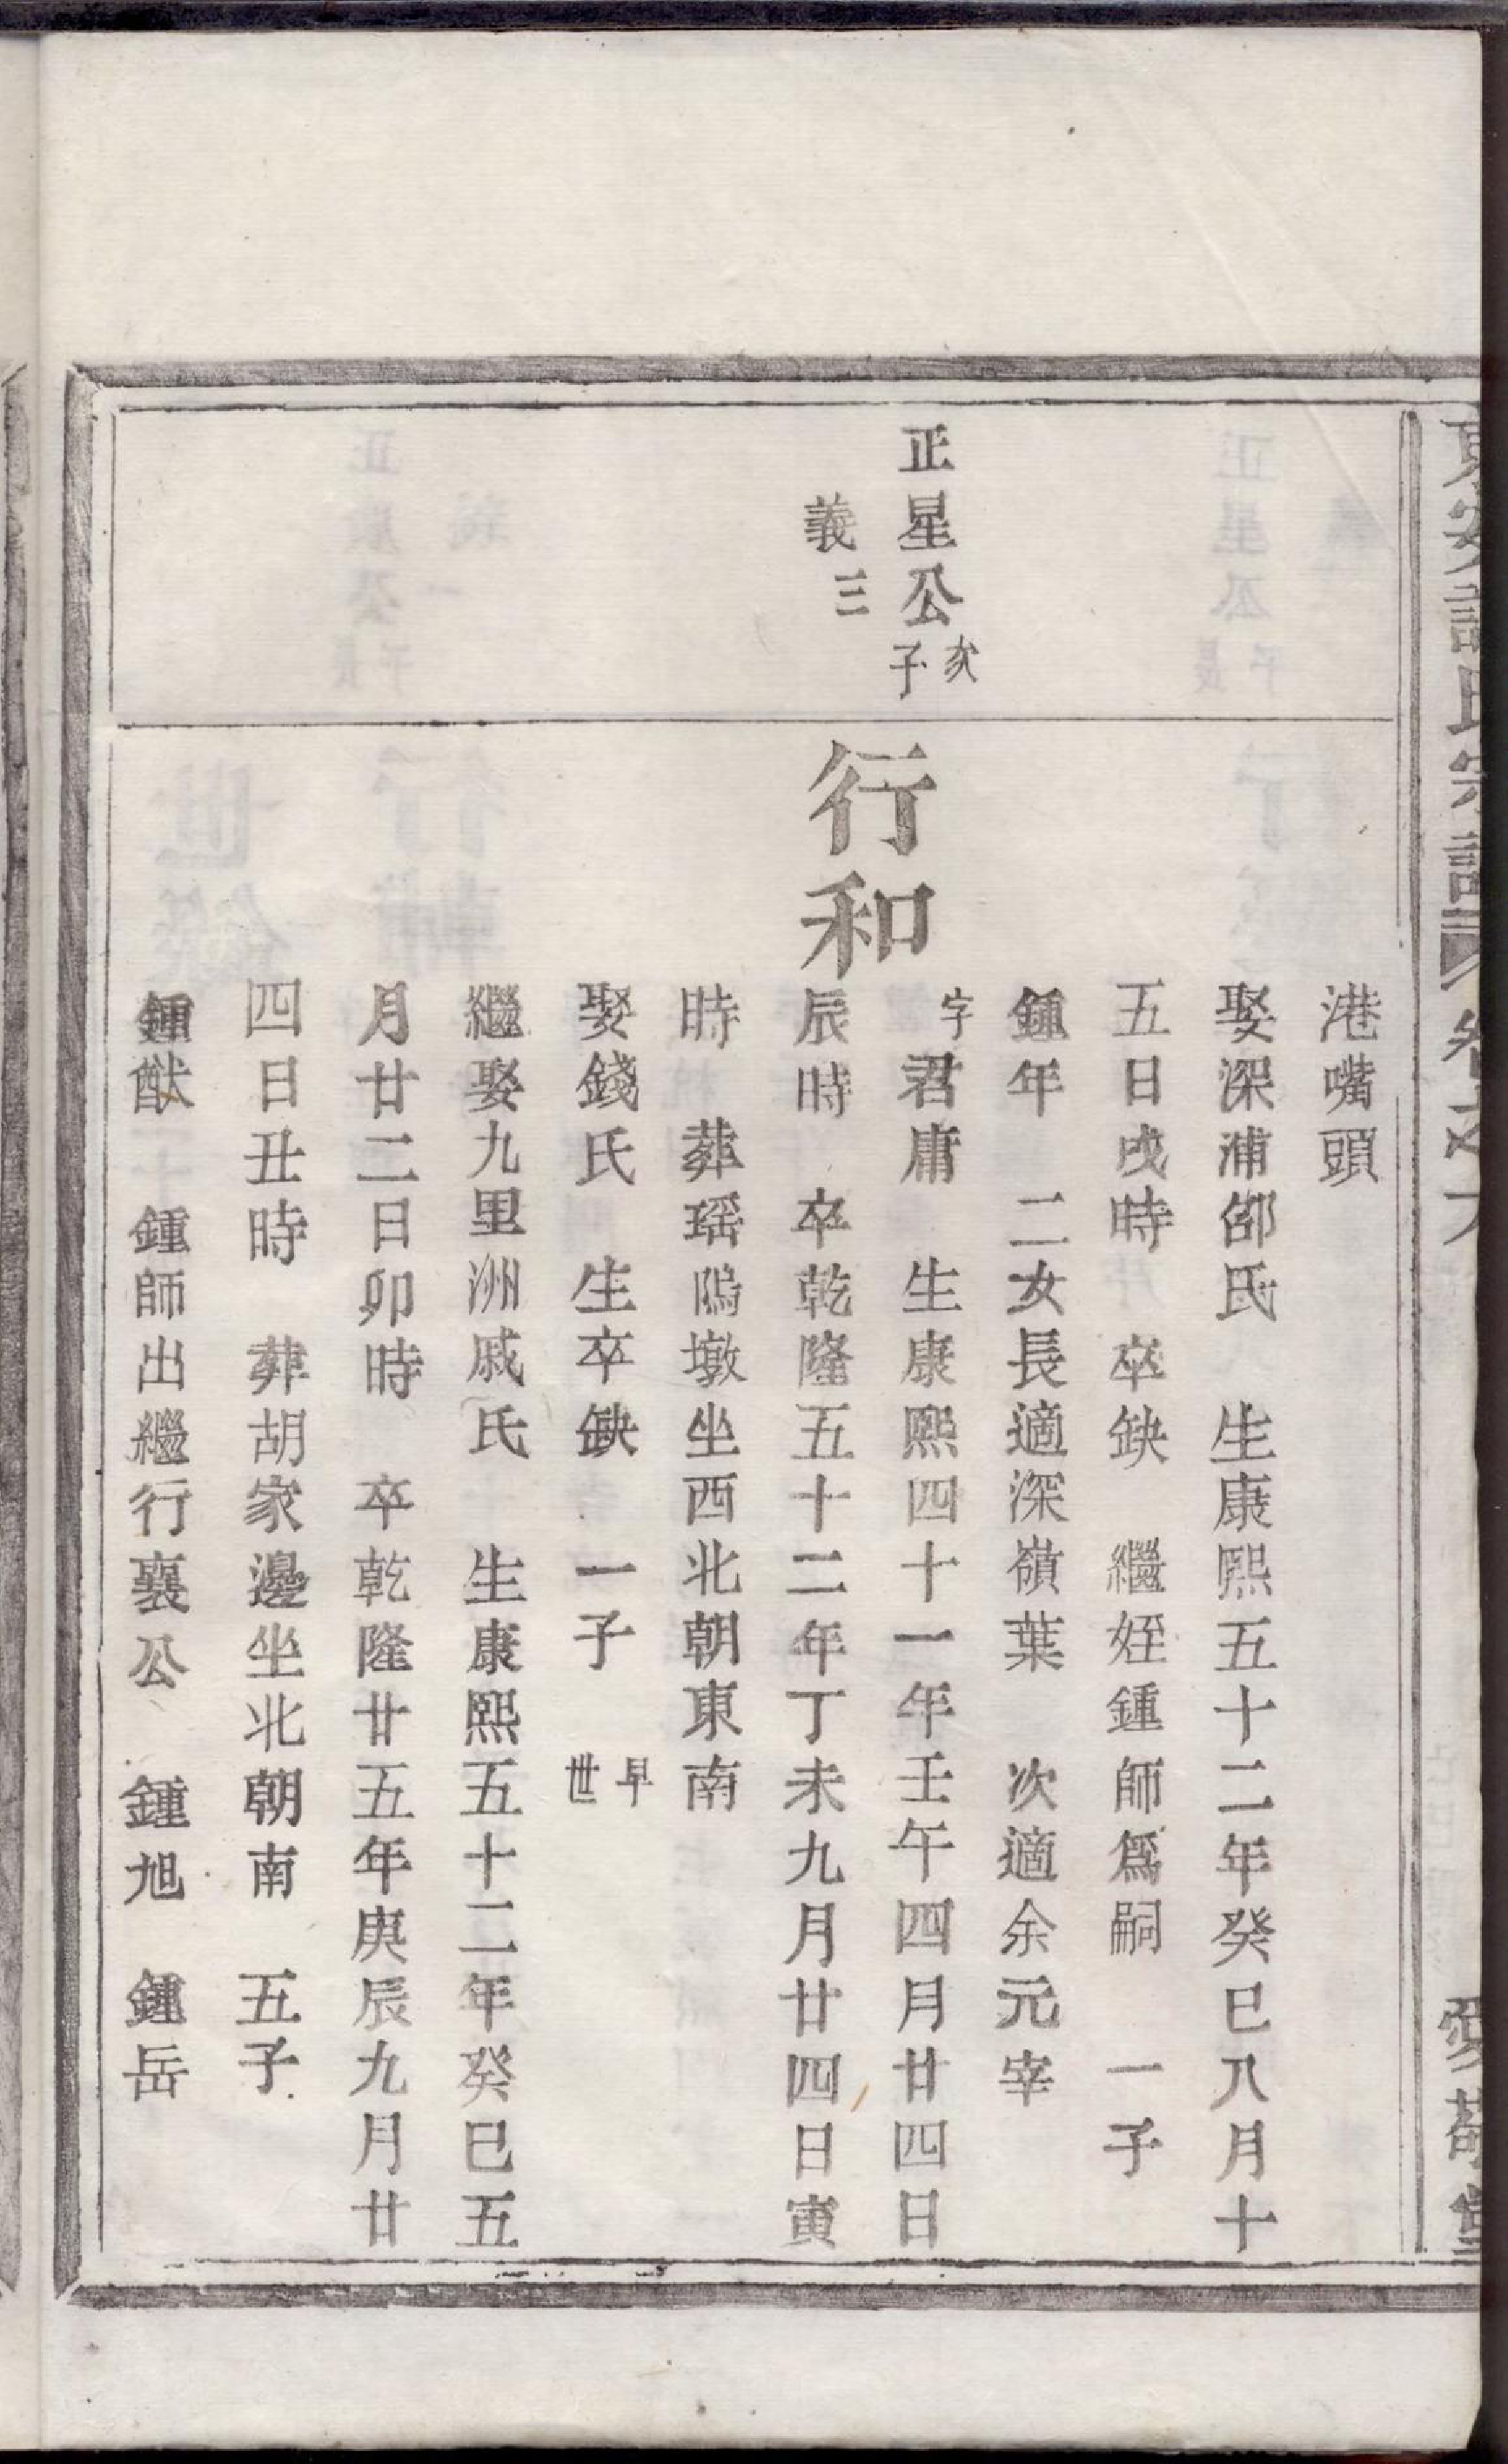 氏宗譜 卷之六
港嘴頭
娶深浦邵氏 生康熙五十二年癸巳八月十
五日戌時 卒缺 繼姪鍾師爲嗣 一子
鍾年 二女長適深嶺葉 次適余元宰
正星公次子
義三
行和
字君庸 生康熙四十一年壬午四月廿四日
辰時 卒乾隆五十二年丁未九月廿四日寅
時 葬瑶隖墩坐西北朝東南
娶錢氏 生卒缺 一子早世
繼娶九里洲戚氏 生康熙五十二年癸巳五
月廿二日卯時 卒乾隆廿五年庚辰九月廿
四日丑時 葬胡家邊坐北朝南 五子
鍾猷 鍾師出繼行襄公 鍾旭 鍾岳